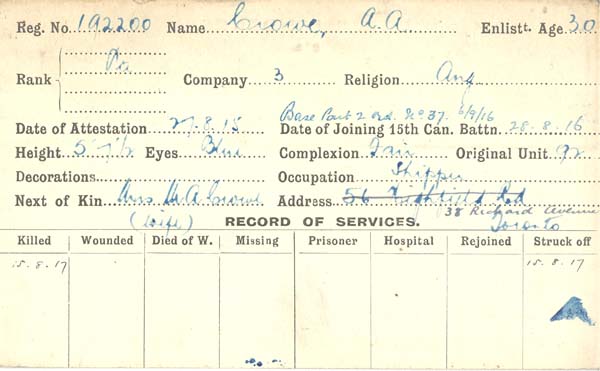 Reg. No. 192200 Name Crowe, A.A. Enlistt. Age 30
Rank Pte Company 3 Religion Ang
Base Part 2 ord. No 37. 6/9/16
Date of Attestation 27.8.15 Date of Joining 15th Can. Battn. 28.8.16
Height 5' 7½ Eyes Blue Complexion Fair Original Unit 92
Decorations Occupation Shipper
Next of Kin Mrs. A Crowe Address 56 Highfield Rd
(wife) 38 Richard Avenue
Toronto
RECORD OF SERVICES.
Killed Wounded Died of W. Missing Prisoner Hospital Rejoined Struck off
15.8.17 15.8.17